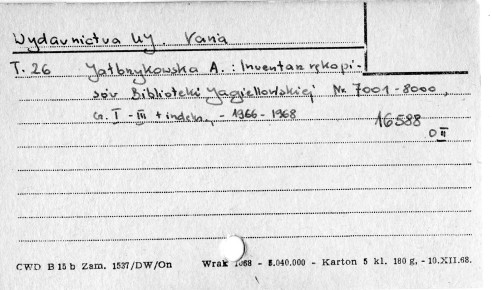 Wydawnictwa UJ. Varia
T. 26 Jałbrzykowska A.: Inwentarz rękopi-
sów Biblioteki Jagiellońskiej Nr 7001-8000,
Cz. I - III + indeks, - 1966 - 1968
16588
O II
CWD B 15 b Zam. 1537/DW/On Wrak 1968 - 5.040.000 - Karton 5 kl. 180 g, - 10.XII.68.